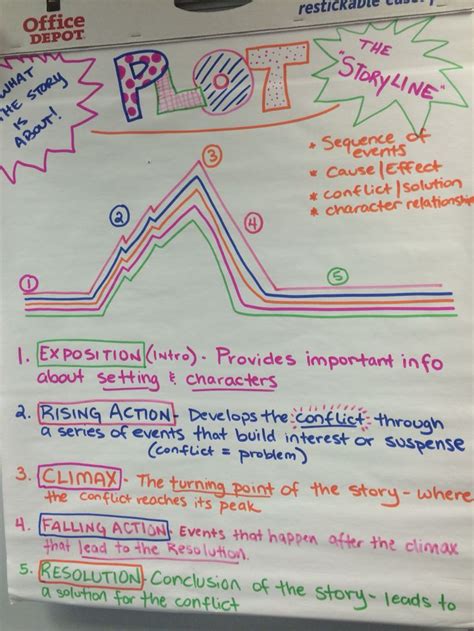 Office
DEPOT
restickable easel
WHAT
THE STORY
IS
ABOUT!
PLOT
THE
"STORYLINE"
* Sequence of
events
* Cause/Effect
* conflict/solution
* character relationships
1
2
3
4
5
1. EXPOSITION (intro) - Provides important info
about setting & characters
2. RISING ACTION - Develops the conflict through
a series of events that build interest or suspense
(conflict = problem)
3. CLIMAX - The turning point of the story - where
the conflict reaches its peak
4. FALLING ACTION - Events that happen after the climax
that lead to the Resolution.
5. RESOLUTION - Conclusion of the story - leads to
a solution for the conflict